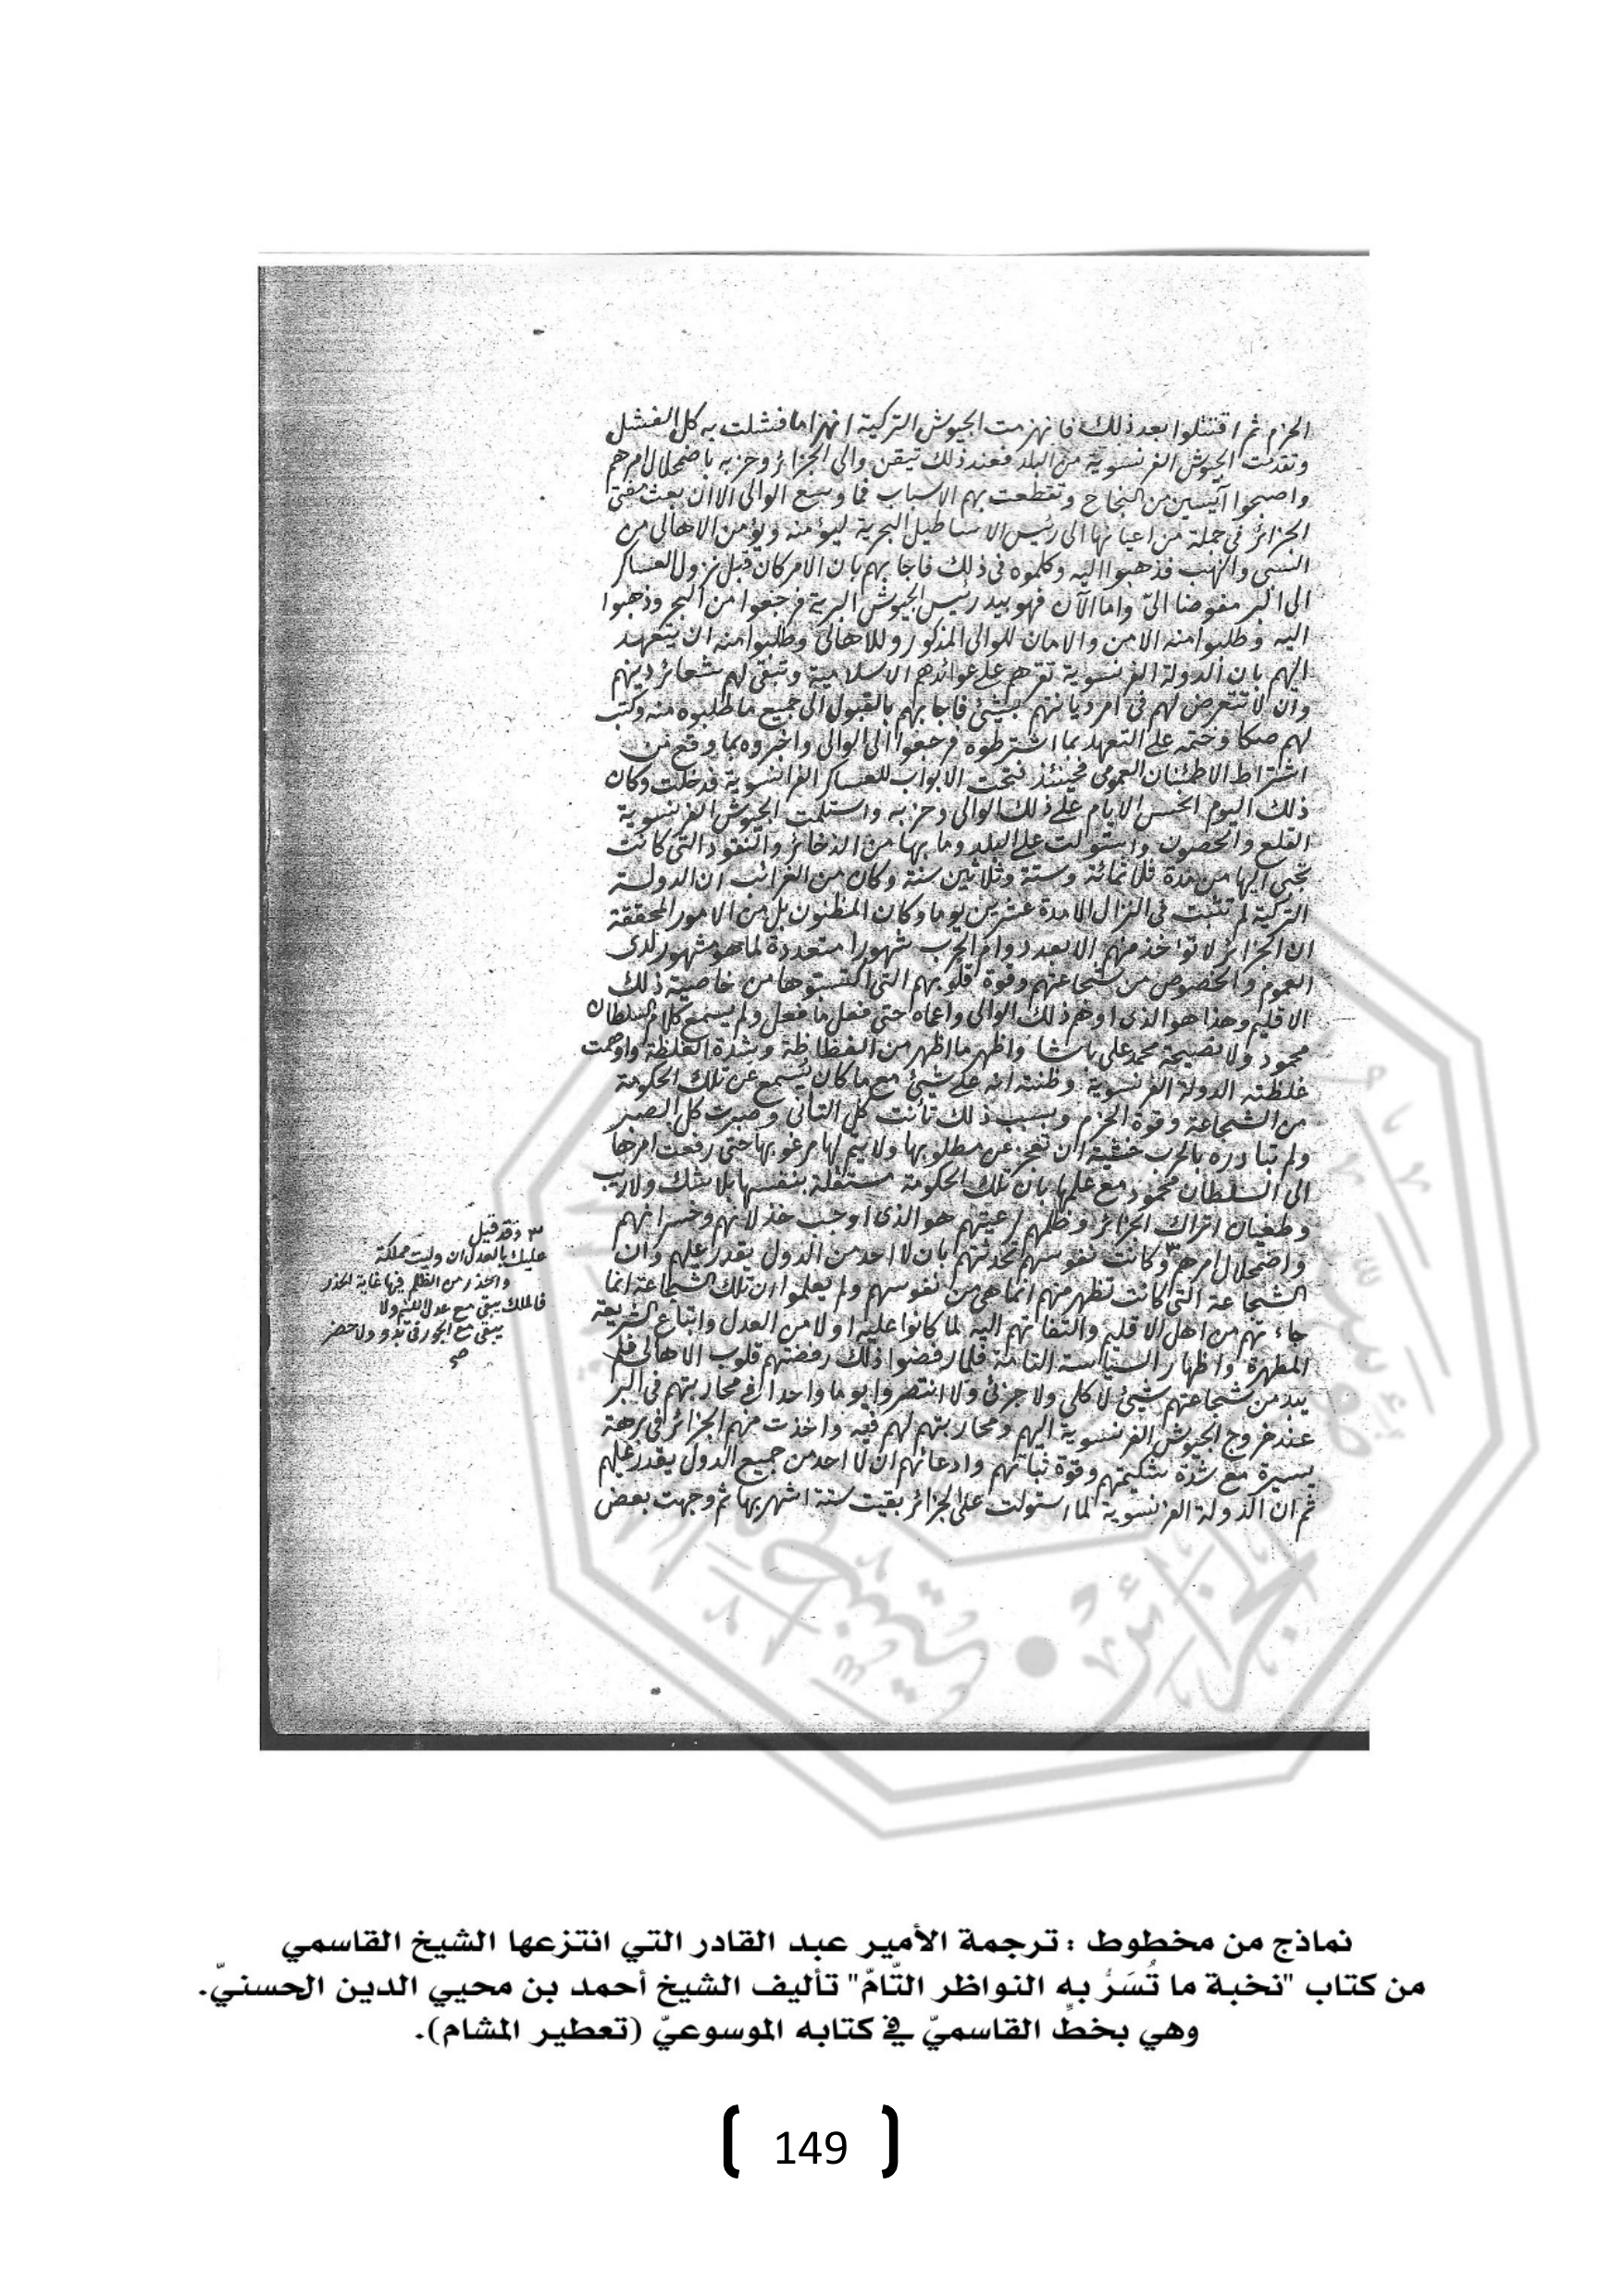 الحزم ثم اقتتلوا بعد ذلك فانهزمت الجيوش التركية انهزاما فشلت به كل الفشل
وتقدمت الجيوش الفرنسوية من البلد فعند ذلك تيقن والي الجزائر وحزبه باضمحلال امرهم
واصبحوا آيسين من النجاح وتقطعت بهم الاسباب فما وسع الوالي الا ان بعث مفتي
الجزائر في جملة من اعيانها الى رئيس الاساطيل البحرية ليؤمنه ويؤمن الاهالي من
السبي والنهب فذهبوا اليه وكلموه في ذلك فاجابهم بان الامر كان قبل نزول العساكر
الى البر مفوضا اليّ واما الآن فهو بيد رئيس الجيوش البرية فرجعوا من البحر وذهبوا
اليه وطلبوا منه الامن والامان للوالي المذكور وللاهالي وطلبوا منه ان يتعهد
اليهم بان الدولة الفرنسوية تقرهم على عوائدهم الاسلامية وتبقى لهم شعائر دينهم
وان لا تتعرض لهم في امر ديانتهم بشيئ فاجابهم بالقبول الى جميع ما طلبوه منه وكتب
لهم صكا وختمه على التعهد بما اشترطوه فرجعوا الى الوالي واخبروه بما وقع من
اشتراط الاطمئنان العمومي فحينئذ فتحت الابواب للعساكر الفرانسوية فدخلت وكان
ذلك اليوم انحس الايام على ذلك الوالي وحزبه واستلمت الجيوش الفرنسوية
القلع والحصون واستولت على البلد وما بها من الذخائر والنقود التي كانت
تجبى اليها من مدة ثلاثمائة وستة وثلاثين سنة وكان من الغرائب ان الدولة
التركية لم تثبت في النزال الا مدة عشرين يوما وكان المظنون بل من الامور المحققة
ان الجزائر لا تؤاخذ منهم الا بعد دوام الحرب شهورا متعددة لما هو مشهور لدى
العموم والخصوص من شجاعتهم وقوة قلوبهم التي اكتسبوها من خاصية ذلك
الاقليم وهذا هو الذي اوهم ذلك الوالي واعماه حتى فعل ما فعل ولم يسمع كلام السلطان
محمود ولا نصيحة محمد علي باشا واظهر ما اظهر من الفظاظة وشدة الغلظة واوهمت
غلظته الدولة الفرنسوية وظنته انه على شيئ مع ما كان يسمع عن تلك الحكومة
من الشجاعة وقوة الحزم وبسبب ذلك تأنت كل التأني وصبرت كل الصبر
ولم تبادره بالحرب خشية ان تعجز عن مطلوبها ولا يتم لها مرغوبها حتى رفعت امرها
الى السلطان محمود مع علمها بان تلك الحكومة مستقلة بنفسها بلا شك ولا ريب
وطغيان اتراك الجزائر وظلمهم لرعيتهم هو الذي اوجب خذلانهم وخسرانهم
واضمحلال امرهم ٣ وكانت نفوسهم تحدثهم بان لا احد من الدول يقدر عليهم وان
الشجاعة التي كانت تظهر منهم انما هي من نفوسهم ولم يعلموا ان تلك الشجاعة انما
جاءتهم من اهل الاقليم والتفاتهم اليه لما كانوا عليه اولا من العدل واتباع الشريعة
المطهرة واظهار السياسة التامة فلما رفضوا ذلك رفضتهم قلوب الاهالي فلم
يبد من شجاعتهم شيئ لا كلي ولا جزئي ولا انتصروا يوما واحدا في محاربتهم في البر
عند خروج الجيوش الفرنسوية اليهم ومحاربتهم لهم فيه واخذت منهم الجزائر في برهة
يسيرة مع شدة شكيمتهم وقوة ثباتهم وادعائهم ان لا احد من جميع الدول يقدر عليهم
ثم ان الدولة الفرنسوية لما استولت على الجزائر بقيت ستة اشهر بها ثم وجهت بعض
٣ وقد قيل
عليك بالعدل ان وليت مملكة
واحذر من الظلم فيها غاية الحذر
فالملك يبقى مع عدل اللئيم ولا
يبقى مع الجور في بدو ولا حضر
صح
نماذج من مخطوط : ترجمة الأمير عبد القادر التي انتزعها الشيخ القاسمي
من كتاب "نخبة ما تُسَرُّ به النواظر التّامّ" تأليف الشيخ أحمد بن محيي الدين الحسنيّ.
وهي بخطِّ القاسميّ في كتابه الموسوعيّ (تعطير المشام).
149